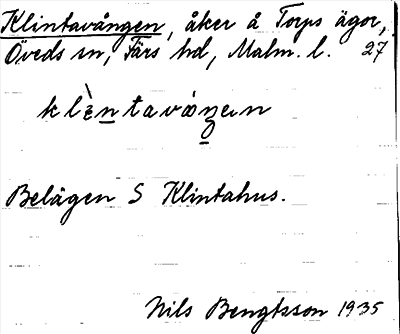 Klintavången, åker å Torps ägor,
Öveds sn, Färs hd, Malm. l. 27
Belägen S Klintahus.
Nils Bengtsson 1935